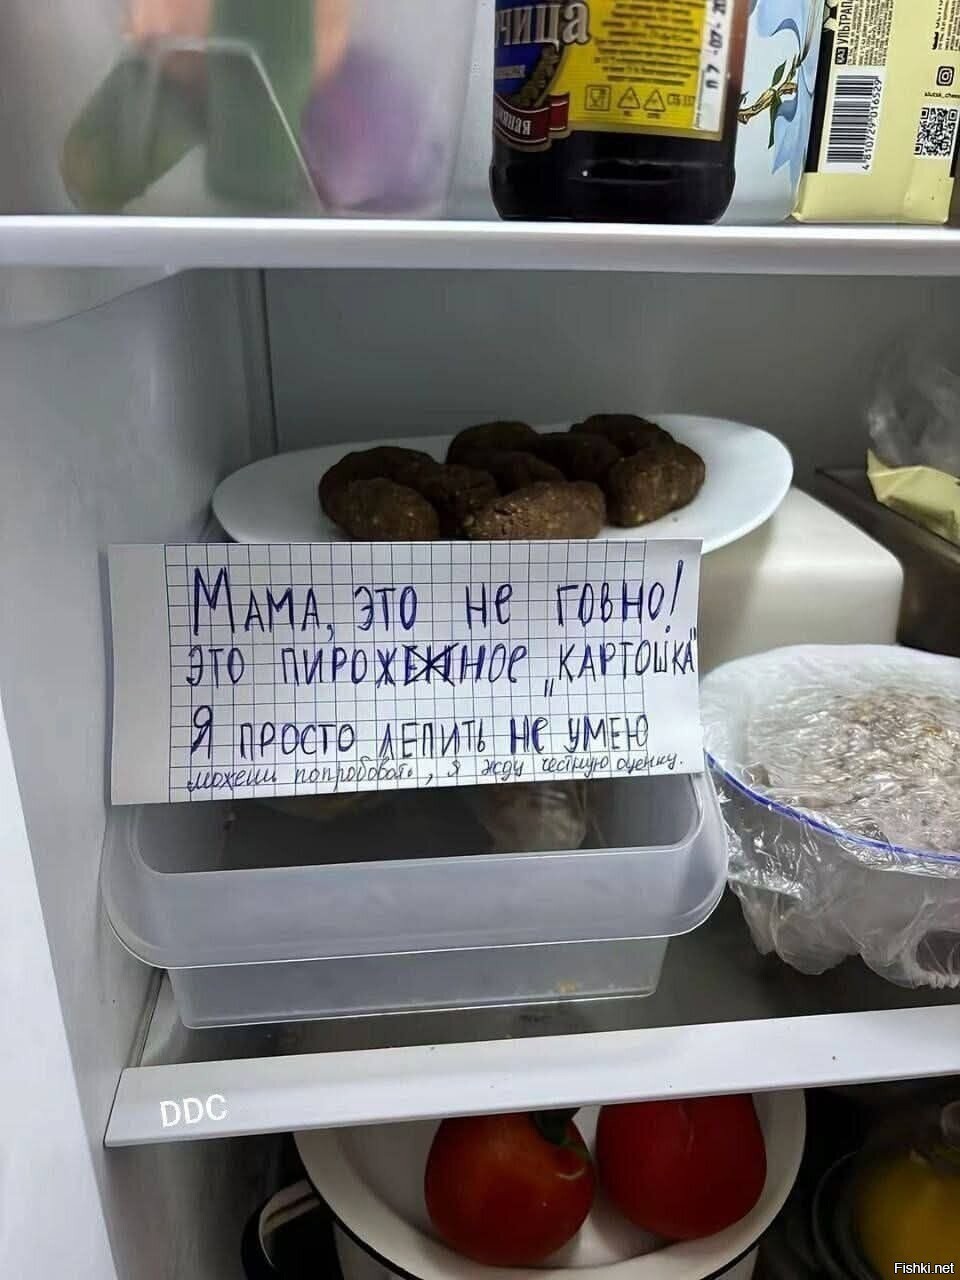 чица
СТБ
07-20
УЛЬТРАП
4810729016529
slutsk_chees
МАМА, ЭТО НЕ ГОВНО!
ЭТО ПИРОЖНОЕ „КАРТОШКА"
Я ПРОСТО ЛЕПИТЬ НЕ УМЕЮ
можешь попробовать, я жду честную оценку.
DDC
Fishki.net